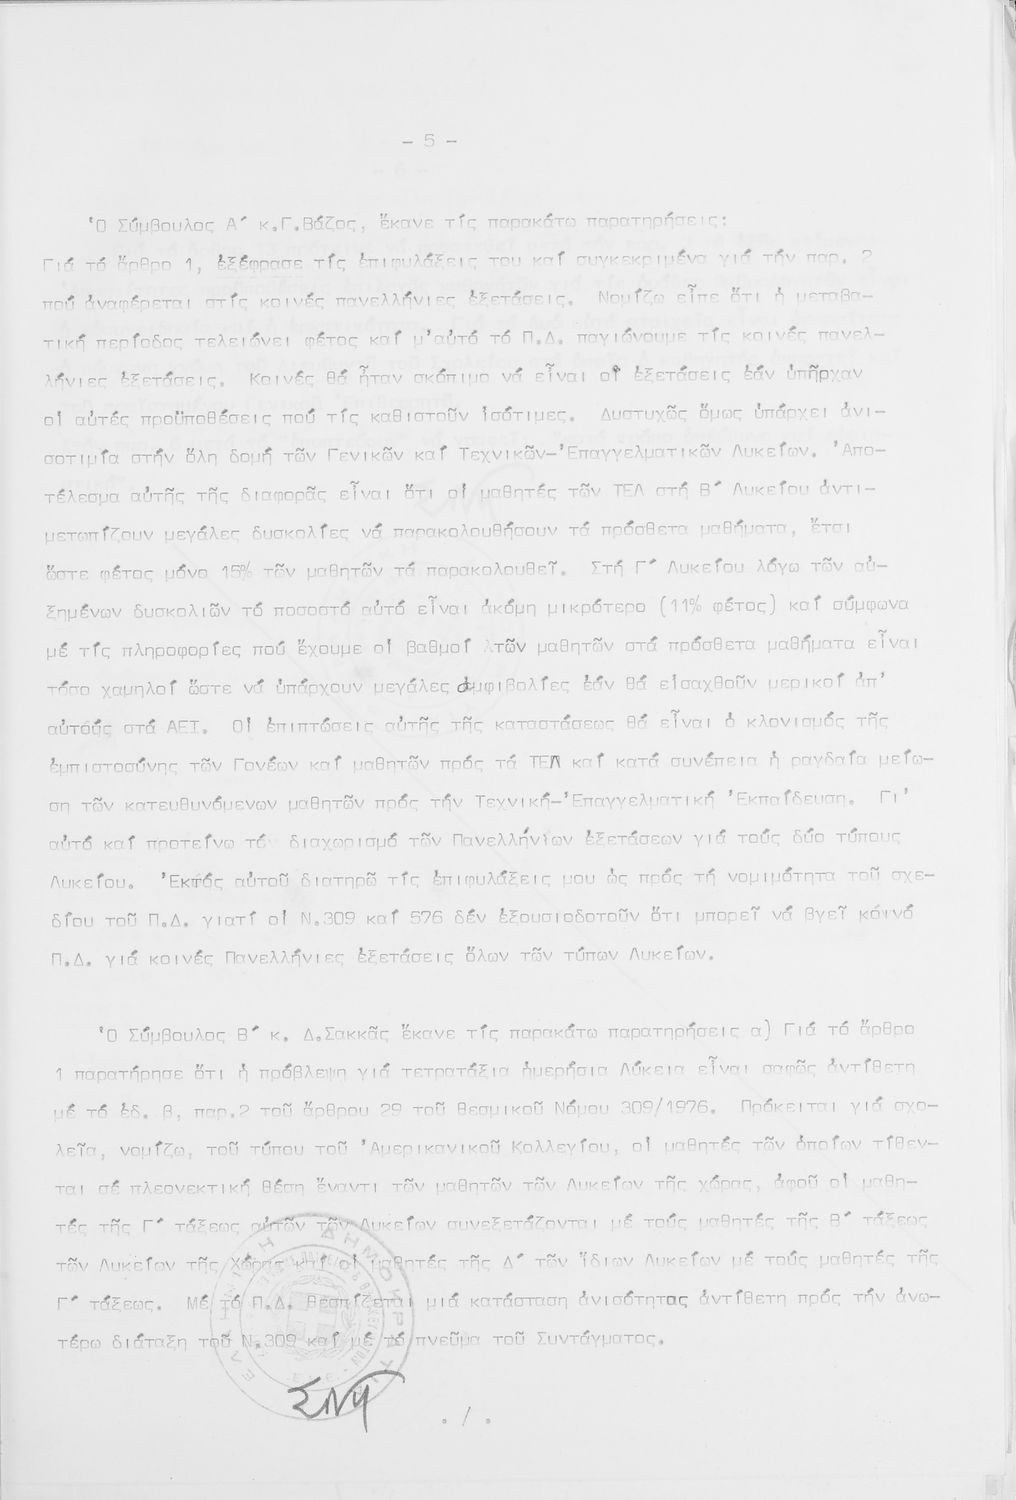 - 5 -
Ὁ Σύμβουλος Α΄ κ.Γ.Βάζος, ἔκανε τίς παρακάτω παρατηρήσεις:
Γιά τό ἄρθρο 1, ἐξέφρασε τίς ἐπιφυλάξεις του καί συγκεκριμένα γιά τήν παρ. 2
πού ἀναφέρεται στίς κοινές πανελλήνιες ἐξετάσεις. Νομίζω εἶπε ὅτι ἡ μεταβα-
τική περίοδος τελειώνει φέτος καί μ'αὐτό τό Π.Δ. παγιώνουμε τίς κοινές πανελ-
λήνιες ἐξετάσεις. Κοινές θά ἦταν σκόπιμο νά εἶναι οἱ ἐξετάσεις ἐάν ὑπῆρχαν
οἱ αὐτές προϋποθέσεις πού τίς καθιστοῦν ἰσότιμες. Δυστυχῶς ὅμως ὑπάρχει ἀνι-
σοτιμία στήν ὅλη δομή τῶν Γενικῶν καί Τεχνικῶν-Ἐπαγγελματικῶν Λυκείων. Ἀπο-
τέλεσμα αὐτῆς τῆς διαφορᾶς εἶναι ὅτι οἱ μαθητές τῶν ΤΕΛ στή Β΄ Λυκείου ἀντι-
μετωπίζουν μεγάλες δυσκολίες νά παρακολουθήσουν τά πρόσθετα μαθήματα, ἔτσι
ὥστε φέτος μόνο 15% τῶν μαθητῶν τά παρακολουθεῖ. Στή Γ΄ Λυκείου λόγω τῶν αὐ-
ξημένων δυσκολιῶν τό ποσοστό αὐτό εἶναι ἀκόμη μικρότερο (11% φέτος) καί σύμφωνα
μέ τίς πληροφορίες πού ἔχουμε οἱ βαθμοί τῶν μαθητῶν στά πρόσθετα μαθήματα εἶναι
τόσο χαμηλοί ὥστε νά ὑπάρχουν μεγάλες ἀμφιβολίες ἐάν θά εἰσαχθοῦν μερικοί ἀπ'
αὐτούς στά ΑΕΙ. Οἱ ἐπιπτώσεις αὐτῆς τῆς καταστάσεως θά εἶναι ὁ κλονισμός τῆς
ἐμπιστοσύνης τῶν Γονέων καί μαθητῶν πρός τά ΤΕΛ καί κατά συνέπεια ἡ ραγδαία μείω-
ση τῶν κατευθυνόμενων μαθητῶν πρός τήν Τεχνική-Ἐπαγγελματική Ἐκπαίδευση. Γι'
αὐτό καί προτείνω τό διαχωρισμό τῶν Πανελλήνίων ἐξετάσεων γιά τούς δύο τύπους
Λυκείου. Ἐκτός αὐτοῦ διατηρῶ τίς ἐπιφυλάξεις μου ὡς πρός τή νομιμότητα τοῦ σχε-
δίου τοῦ Π.Δ. γιατί οἱ Ν.309 καί 576 δέν ἐξουσιοδοτοῦν ὅτι μπορεῖ νά βγεῖ κοινό
Π.Δ. γιά κοινές Πανελλήνιες ἐξετάσεις ὅλων τῶν τύπων Λυκείων.
Ὁ Σύμβουλος Β΄ κ. Δ.Σακκᾶς ἔκανε τίς παρακάτω παρατηρήσεις α) Γιά τό ἄρθρο
1 παρατήρησε ὅτι ἡ πρόβλεψη γιά τετρατάξια ἡμερήσια Λύκεια εἶναι σαφῶς ἀντίθετη
μέ τό ἐδ. β, παρ.2 τοῦ ἄρθρου 29 τοῦ θεσμικοῦ Νόμου 309/1976. Πρόκειται γιά σχο-
λεῖα, νομίζω, τοῦ τύπου τοῦ Ἀμερικανικοῦ Κολλεγίου, οἱ μαθητές τῶν ὁποίων τίθεν-
ται σέ πλεονεκτική θέση ἔναντι τῶν μαθητῶν τῶν Λυκείων τῆς χώρας, ἀφοῦ οἱ μαθη-
τές τῆς Γ΄ τάξεως αὐτῶν τῶν Λυκείων συνεξετάζονται μέ τούς μαθητές τῆς Β΄ τάξεως
τῶν Λυκείων τῆς Χώρας καί οἱ μαθητές τῆς Δ΄ τῶν ἴδιων Λυκείων μέ τούς μαθητές τῆς
Γ΄ τάξεως. Μέ τό Π.Δ. θεσπίζεται μιά κατάσταση ἀνισότητας ἀντίθετη πρός τήν ἀνω-
τέρω διάταξη τοῦ Ν.309 καί μέ τό πνεῦμα τοῦ Συντάγματος.
./.